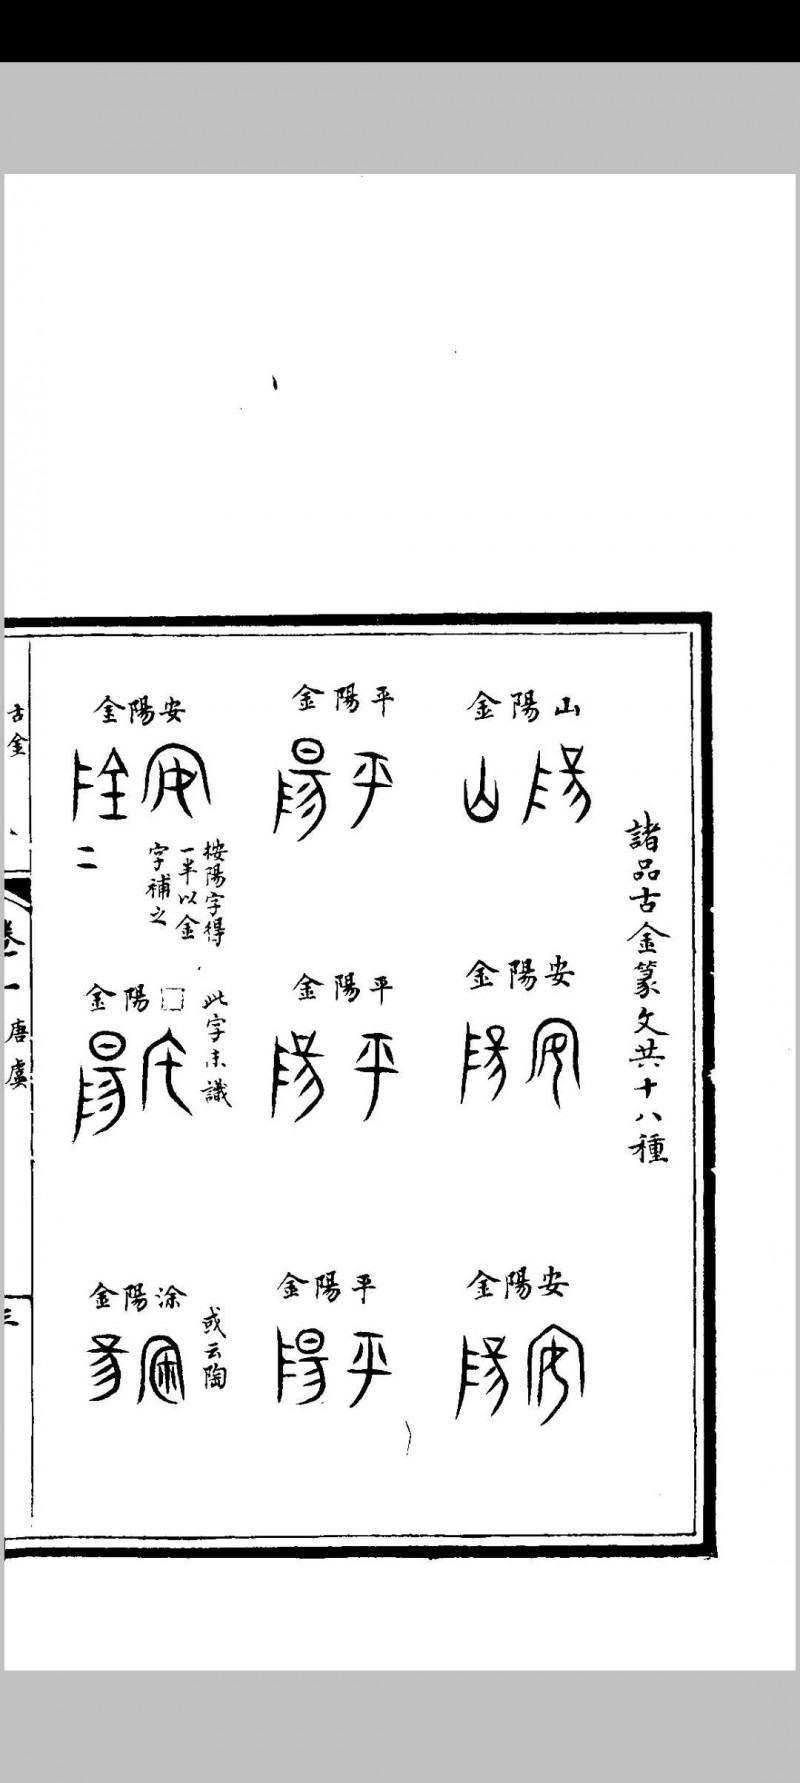 諸品古金篆文共十八種
山陽金
安陽金
安陽金
平陽金
平陽金
平陽金
安陽金
按陽字得
一半以金
字補之
二
□陽金
此字未識
涂陽金
或云陶
古金
卷一
唐虞
三